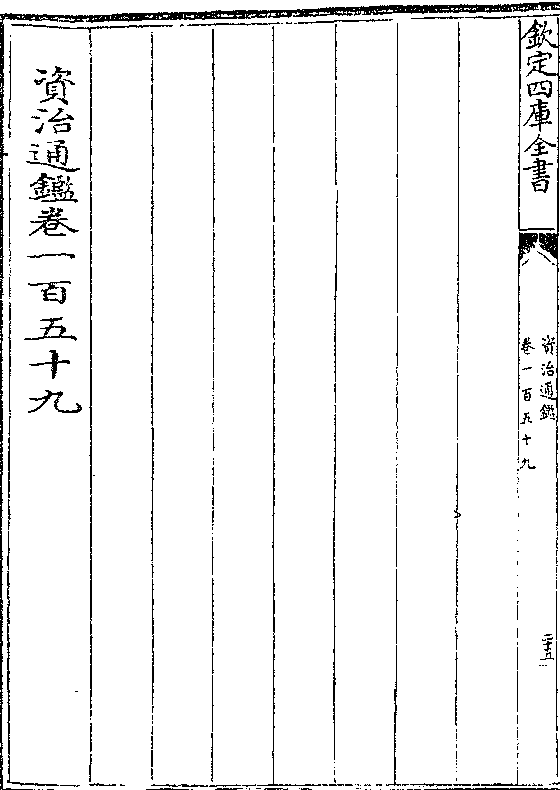 欽定四庫全書
資治通鑑
卷一百五十九
二十五
資治通鑑卷一百五十九